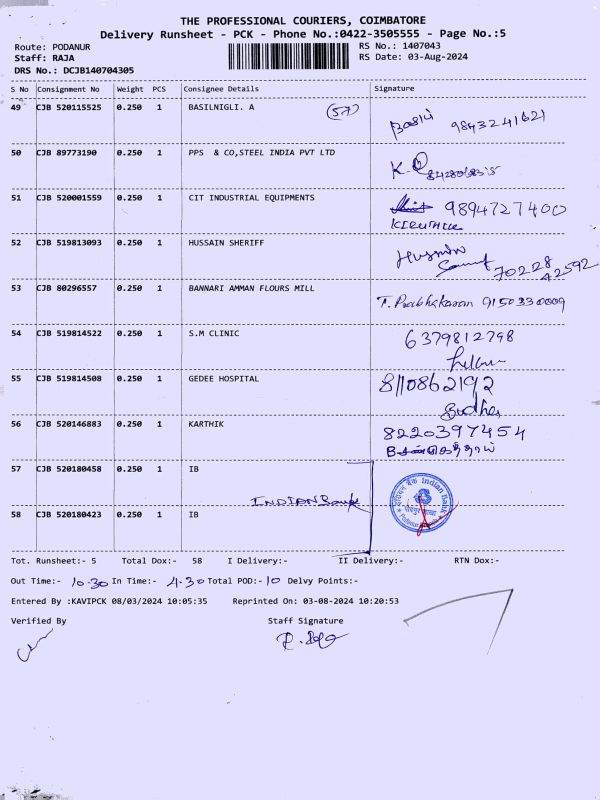 THE PROFESSIONAL COURIERS, COIMBATORE
Delivery Runsheet - PCK - Phone No.:0422-3505555 - Page No.:5
Route: PODANUR RS No.: 1407043
Staff: RAJA RS Date: 03-Aug-2024
DRS No.: DCJB140704305
S No Consignment No Weight PCS Consignee Details Signature
49 CJB 520115525 0.250 1 BASILNIGLI. A (57) 9843241621
50 CJB 89773190 0.250 1 PPS & CO,STEEL INDIA PVT LTD K.
51 CJB 520001559 0.250 1 CIT INDUSTRIAL EQUIPMENTS 9894727400
52 CJB 519813093 0.250 1 HUSSAIN SHERIFF 70228
42592
53 CJB 80296557 0.250 1 BANNARI AMMAN FLOURS MILL T. Prabhakaran 9150330009
54 CJB 519814522 0.250 1 S.M CLINIC 6379812798
55 CJB 519814508 0.250 1 GEDEE HOSPITAL 8110862192
56 CJB 520146883 0.250 1 KARTHIK 8220397454
57 CJB 520180458 0.250 1 IB
INDIAN Bank
58 CJB 520180423 0.250 1 IB
Tot. Runsheet:- 5 Total Dox:- 58 I Delivery:- II Delivery:- RTN Dox:-
Out Time:- 10.30 In Time:- 4.30 Total POD:- 10 Delvy Points:-
Entered By :KAVIPCK 08/03/2024 10:05:35 Reprinted On: 03-08-2024 10:20:53
Verified By Staff Signature